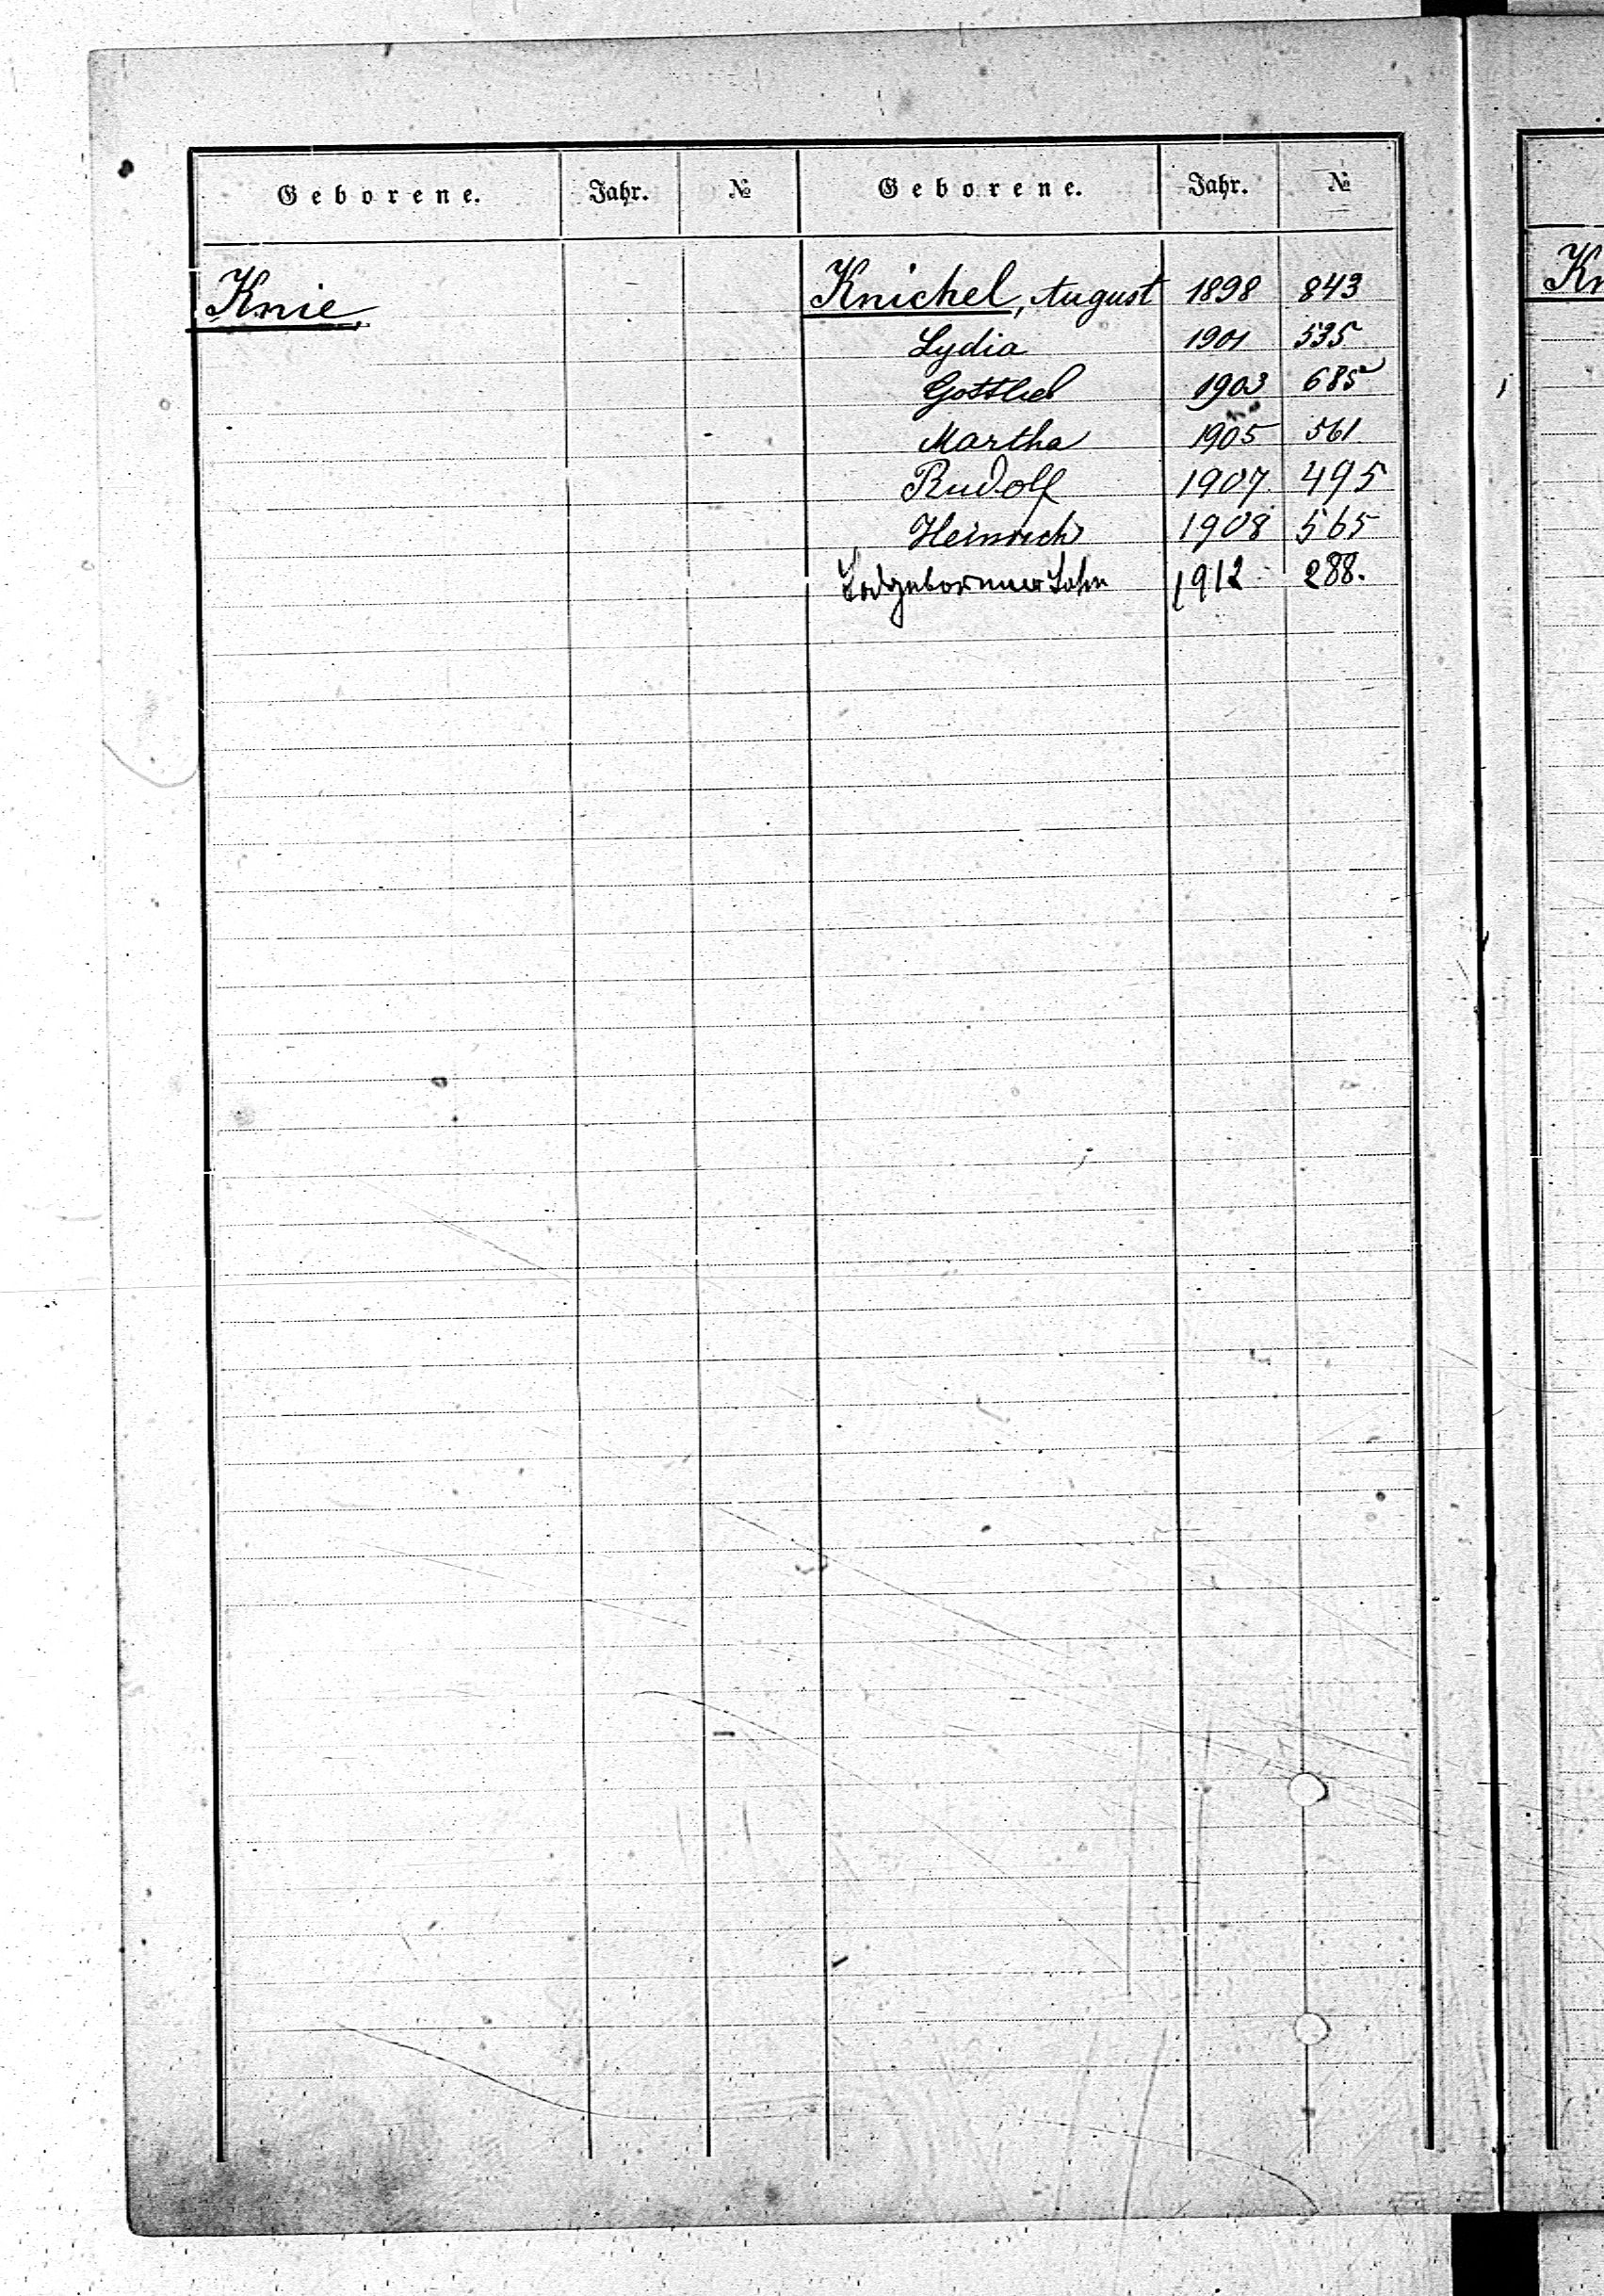 Geborene. Jahr. № Geborene. Jahr. №
Knie, Knichel, August 1898 843
Lydia 1901 535
Gottlieb 1903 685
Martha 1905 561
Rudolf 1907 495
Heinrich 1908 565
Todgeborener Sohn 1912 288.
Kn